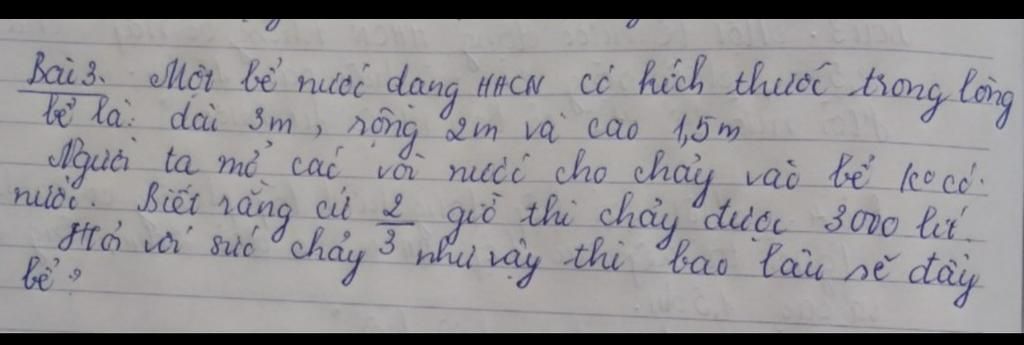 Bài 3. Một bể nước dạng HHCN có kích thước trong lòng
bể là: dài 3m, rộng 2m và cao 1,5m
Người ta mở các vòi nước cho chảy vào bể ko có
nước. Biết rằng cứ 2/3 giờ thì chảy được 3000 lít.
Hỏi với sức chảy như vậy thì bao lâu sẽ đầy
bể?